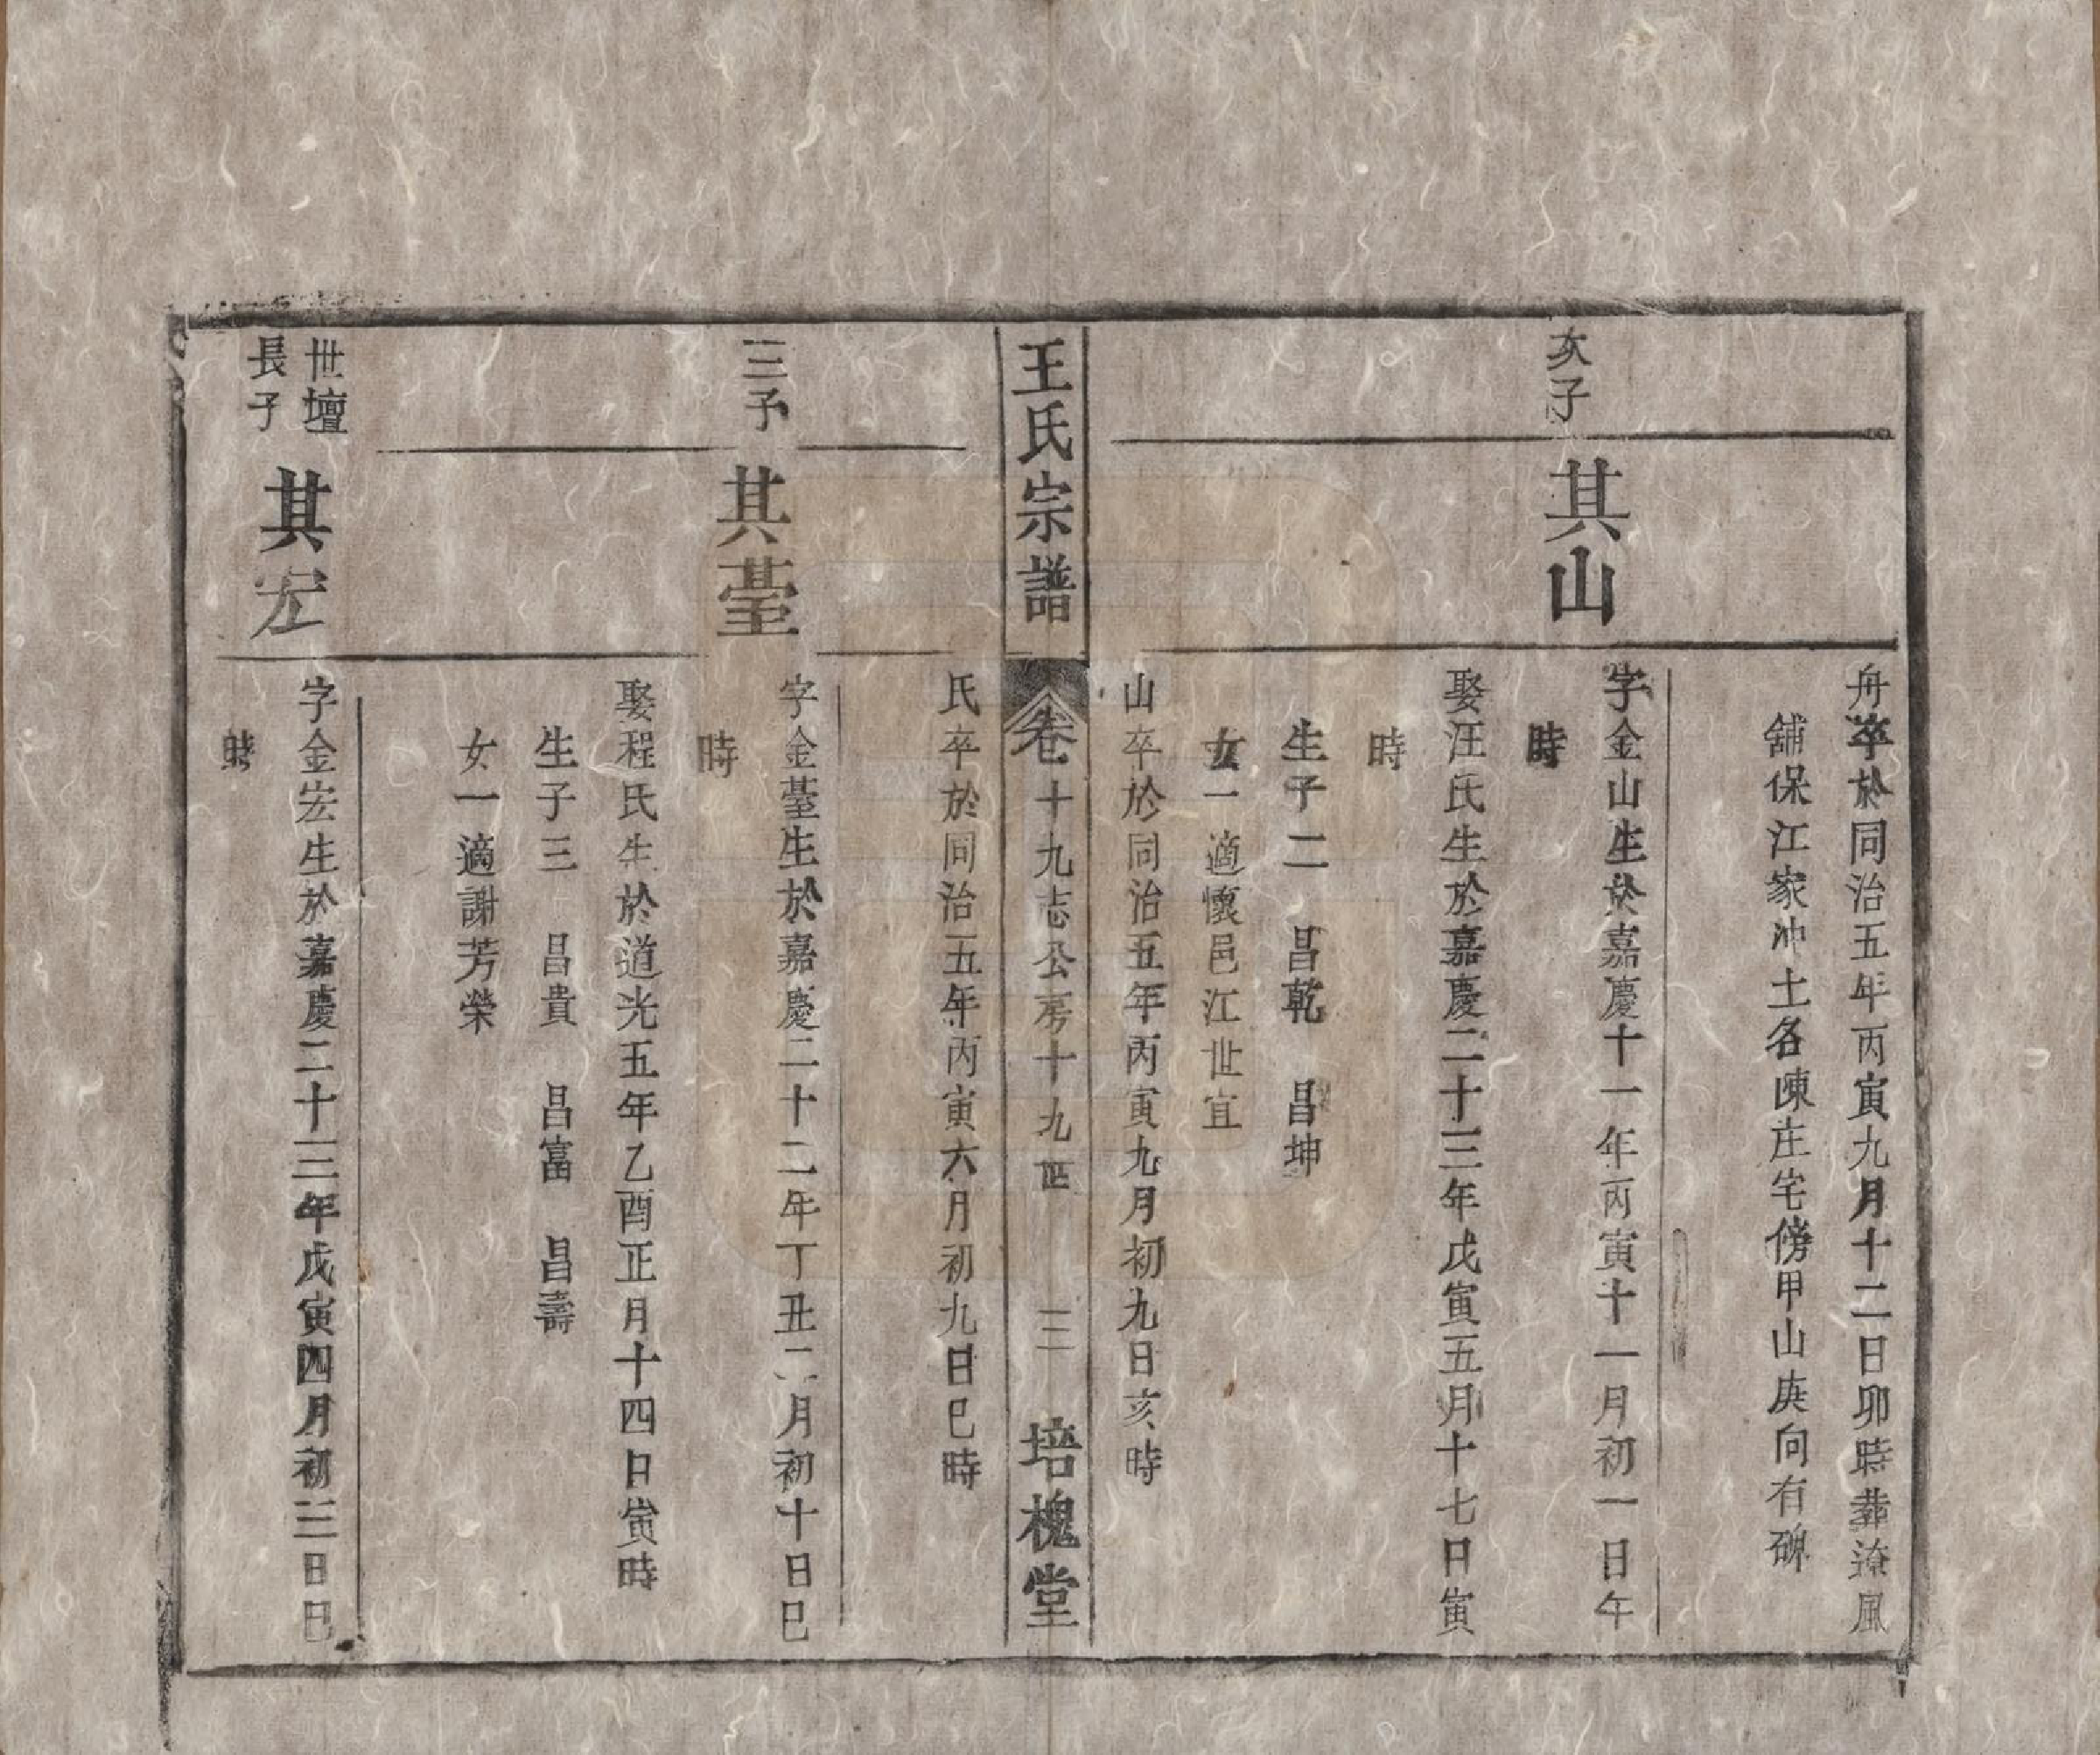 舟卒於同治五年丙寅九月十二日卯時葬遼風
舖保江家冲土名陳庄宅傍甲山庚向有碑
次子
其山
字金山生於嘉慶十一年丙寅十一月初一日午
時
娶汪氏生於嘉慶二十三年戊寅五月十七日寅
時
生子二 昌乾 昌坤
女一適懷邑江世宜
山卒於同治五年丙寅九月初九日亥時
王氏宗譜
卷十九志公房十九世
三
培槐堂
氏卒於同治五年丙寅六月初九日巳時
三子
其臺
字金臺生於嘉慶二十二年丁丑二月初十日巳
時
娶程氏生於道光五年乙酉正月十四日寅時
生子三 昌貴 昌富 昌壽
女一適謝芳榮
世壇
長子
其宏
字金宏生於嘉慶二十三年戊寅四月初三日巳
時